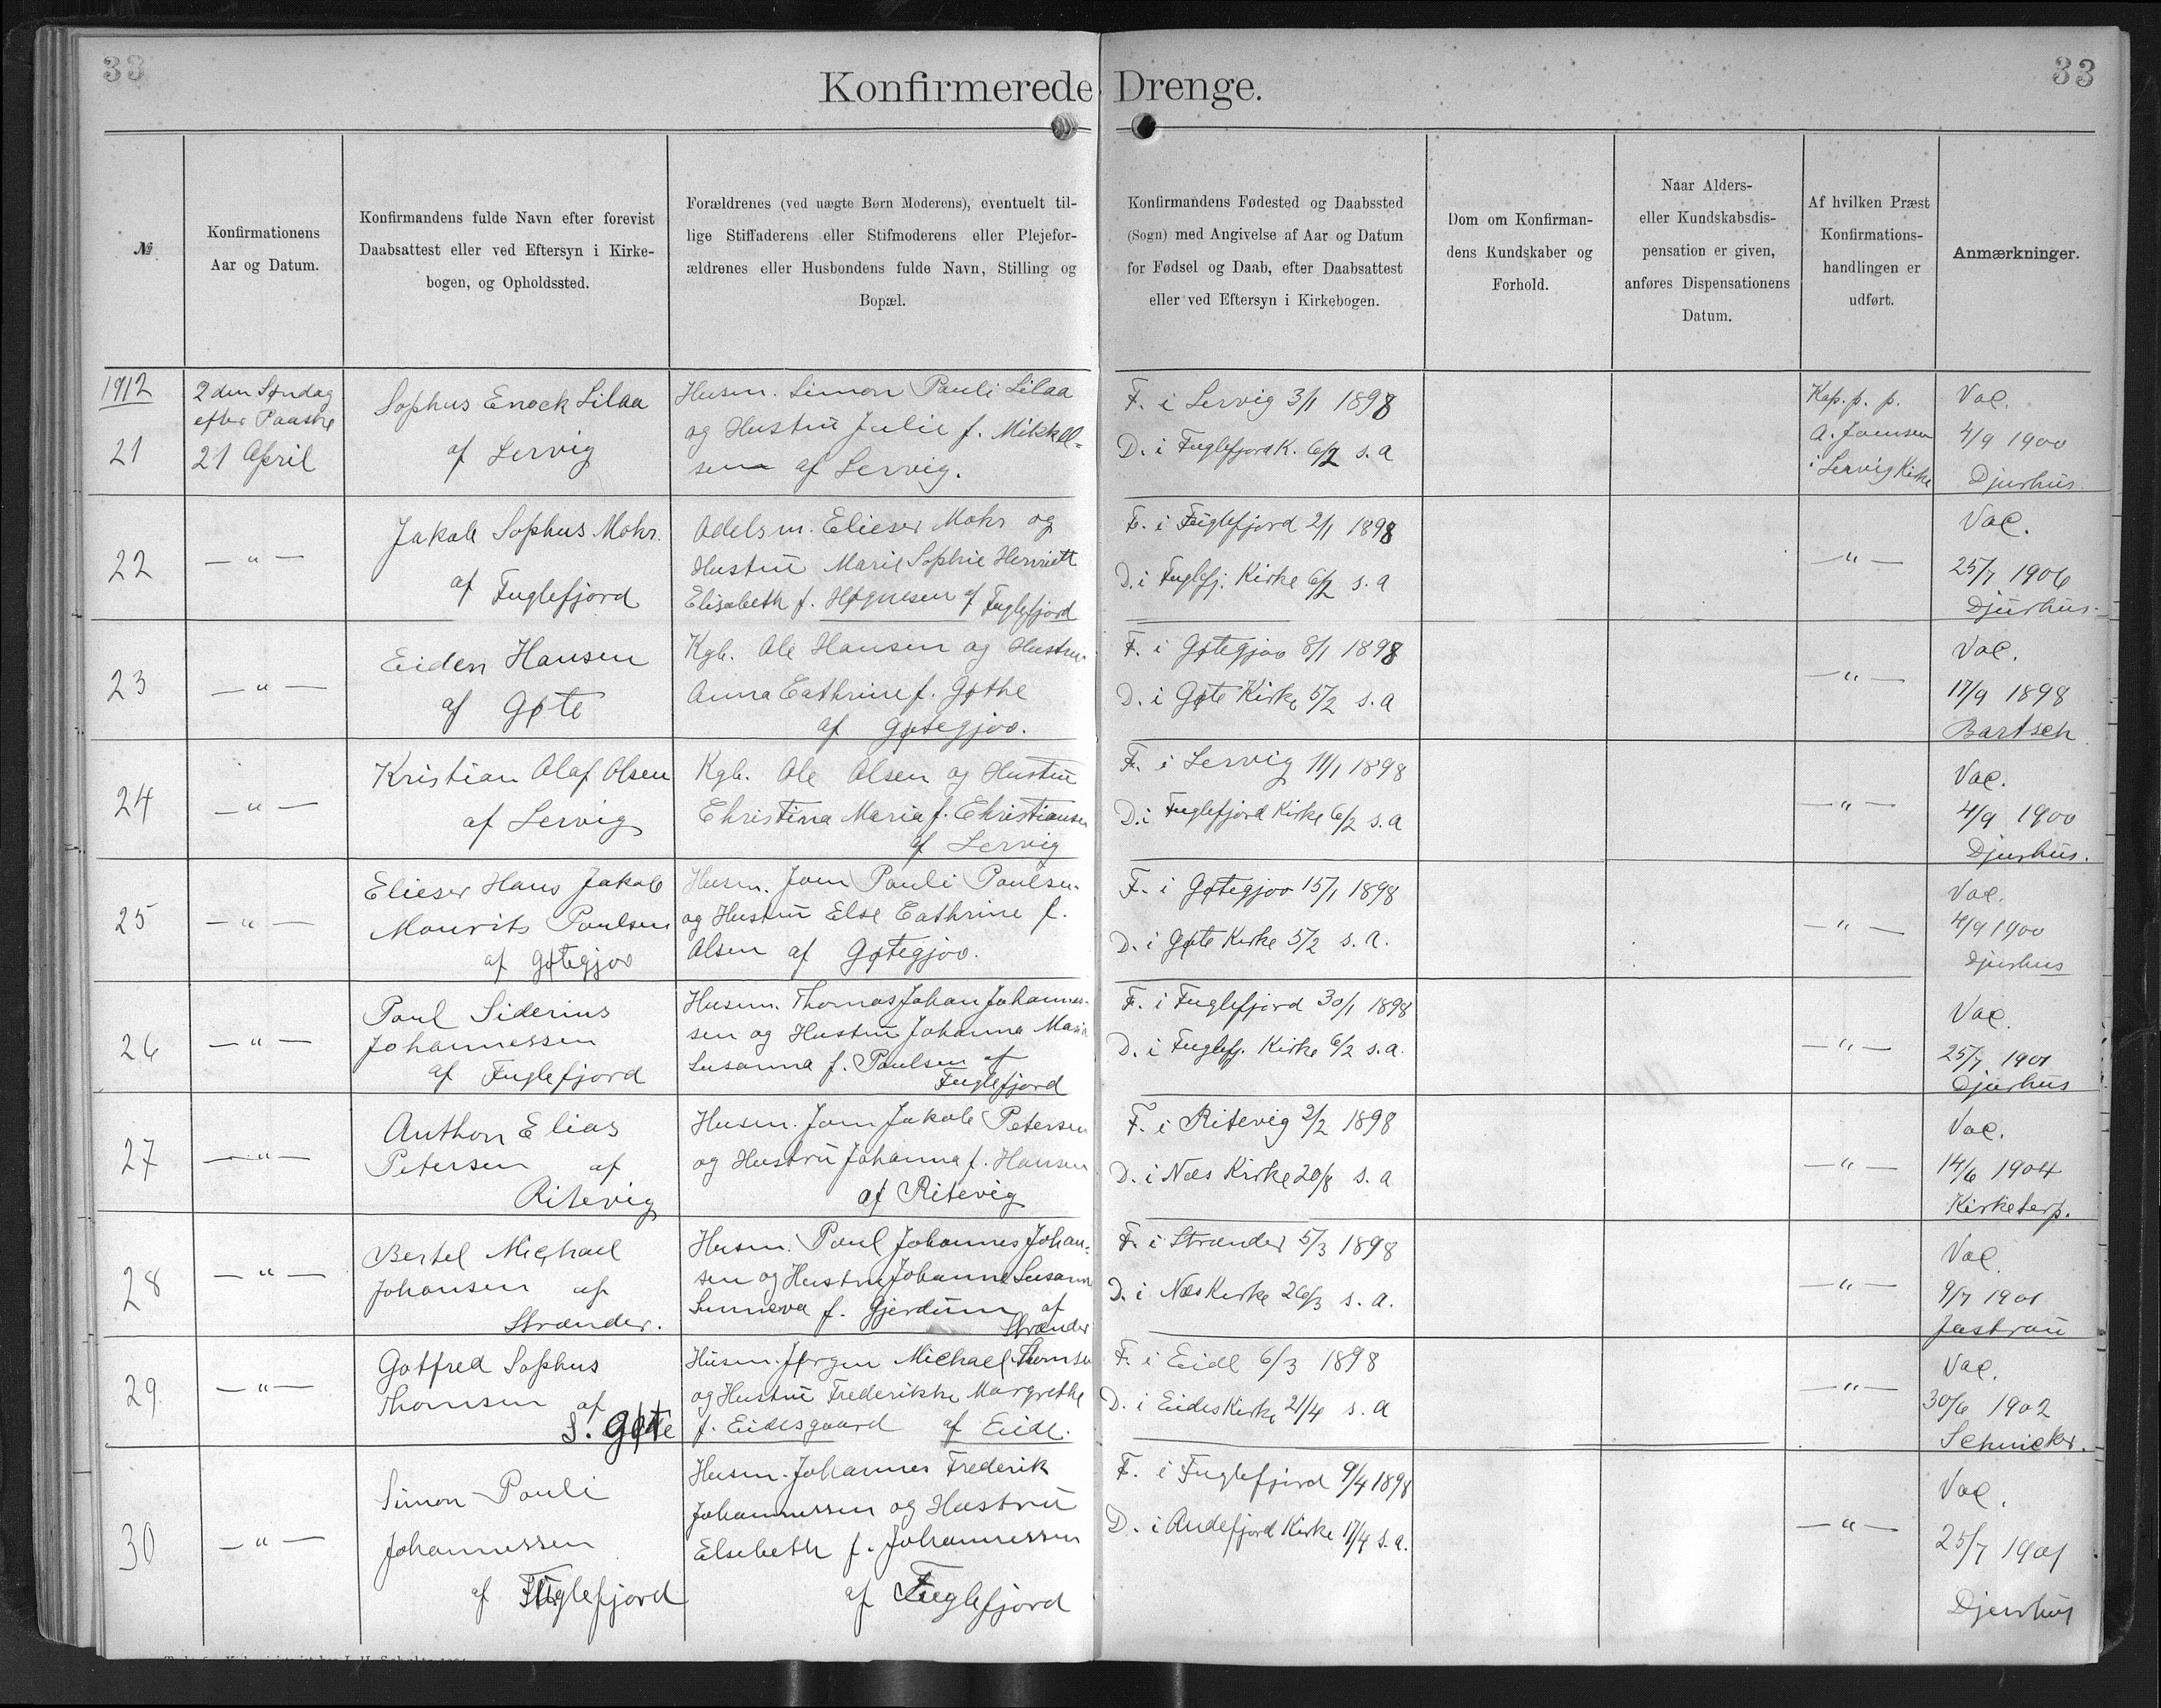 33
33
Konfirmerede Drenge.
№
Konfirmationens
Aar og Datum.
Konfirmandens fulde Navn efter forevist
Daabsattest eller ved Eftersyn i Kirke-
bogen, og Opholdssted.
Forældrenes (ved uægte Børn Moderens), eventuelt til-
lige Stiffaderens eller Stifmoderens eller Plejefor-
ældrenes eller Husbondens fulde Navn, Stilling og
Bopæl.
Konfirmandens Fødested og Daabssted
(Sogn) med Angivelse af Aar og Datum
for Fødsel og Daab, efter Daabsattest
eller ved Eftersyn i Kirkebogen.
Dom om Konfirman-
dens Kundskaber og
Forhold.
Naar Alders-
eller Kundskabsdis-
pensation er given,
anføres Dispensationens
Datum.
Af hvilken Præst
Konfirmations-
handlingen er
udført.
Anmærkninger.
1912
21
2den Søndag
efter Paaske
21 April
Sophus Enock Lilaa
af Lervig
Husm. Simon Pauli Lilaa
og Hustru Julie f. Mikkel=
sen af Lervig.
F. i Lervig 3/1 1898
D. i Fuglefjord K. 6/2 s. a
Kap. p. p.
A. Joensen
i Lervig Kirke
Vac.
4/9 1900
Djurhus
22
— " —
Jakob Sophus Mohr.
af Fuglefjord
Odelsm. Elieser Mohr og
Hustru Marie Sophie Henriett
Elisabeth f. Høgnesen af Fuglefjord
F. i Fuglefjord 2/1 1898
D. i Fuglefj. Kirke 6/2 s. a
— " —
Vac.
25/7 1906
Djurhus.
23
— " —
Eiden Hansen
af Gøte
Kgb. Ole Hansen og Hustru
Anna Cathrine f. Gøthe
af Gøtegjov.
F. i Gøtegjov 8/1 1898
D. i Gøte Kirke 5/2 s. a
— " —
Vac.
17/9 1898
Bartsch
24
— " —
Kristian Olaf Olsen
af Lervig
Kgb. Ole Olsen og Hustru
Christina Maria f. Christiansen
af Lervig
F. i Lervig 11/1 1898
D. i Fuglefjord Kirke 6/2 s. a
— " —
Vac.
4/9 1900
Djurhus.
25
— " —
Elieser Hans Jakob
Mourits Poulsen
af Gøtegjov
Husm. Joen Pauli Poulsen
og Hustru Else Cathrine f.
Olsen af Gøtegjov.
F. i Gøtegjov 15/1 1898
D. i Gøte Kirke 5/2 s. a.
— " —
Vac.
4/9 1900
Djurhus
26
— " —
Poul Siderius
Johannessen
af Fuglefjord
Husm. Thomas Johan Johannes-
sen og Hustru Johanna Maria
Susanna f. Poulsen af
Fuglefjord
F. i Fuglefjord 30/1 1898
D. i Fuglefj. Kirke 6/2 s. a.
— " —
Vac.
25/7 1901
Djurhus
27
— " —
Anthon Elias
Petersen af
Ritevig
Husm. Joen Jakob Petersen
og Hustru Johanna f. Hansen
af Ritevig
F. i Ritevig 2/2 1898
D. i Næs Kirke 20/8 s. a
— " —
Vac.
14/6 1904
Kirketerp.
28
— " —
Bertel Michael
Johansen af
Strænder.
Husm. Poul Johannes Johan=
sen og Hustru Johanne Susanne
Sunneva f. Gjerdum af
Strænder
F. i Strænder 5/3 1898
D. i Næs Kirke 26/3 s. a.
— " —
Vac.
9/7 1901
Jastrau
29
— " —
Gotfred Sophus
Thomsen af
S. Gøte
Husm. Jørgen Michael Thomsen
og Hustru Frederikke Margrethe
f. Eidesgaard af Eide.
F. i Eide 6/3 1898
D. i Eides Kirke 21/4 s. a
— " —
Vac.
30/6 1902
Schmicker.
30
— " —
Simon Pauli
Johannessen
af Fuglefjord
Husm. Johannes Frederik
Johannessen og Hustru
Elsebeth f. Johannessen
af Fuglefjord
F. i Fuglefjord 9/4 1898
D. i Andefjord Kirke 17/4 s. a.
— " —
Vac.
25/7 1901
Djurhus